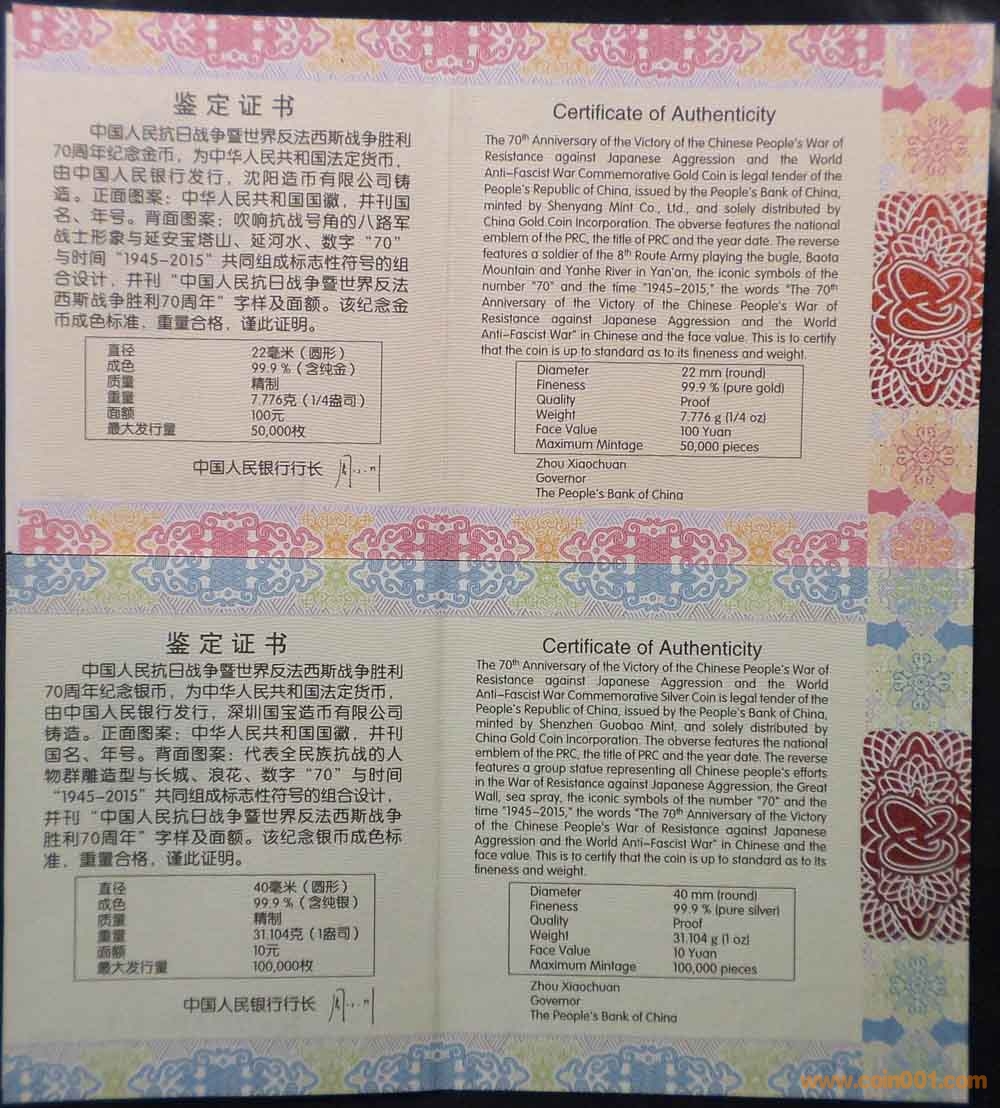 鉴定证书
中国人民抗日战争暨世界反法西斯战争胜利
70周年纪念金币，为中华人民共和国法定货币，
由中国人民银行发行，沈阳造币有限公司铸
造。正面图案：中华人民共和国国徽，并刊国
名、年号。背面图案：吹响抗战号角的八路军
战士形象与延安宝塔山、延河水、数字“70”
与时间“1945-2015”共同组成标志性符号的组
合设计，并刊“中国人民抗日战争暨世界反法
西斯战争胜利70周年”字样及面额。该纪念金
币成色标准，重量合格，谨此证明。
直径 22毫米（圆形）
成色 99.9%（含纯金）
质量 精制
重量 7.776克（1/4盎司）
面额 100元
最大发行量 50,000枚
中国人民银行行长
Certificate of Authenticity
The 70th Anniversary of the Victory of the Chinese People's War of
Resistance against Japanese Aggression and the World
Anti-Fascist War Commemorative Gold Coin is legal tender of the
People's Republic of China, issued by the People's Bank of China,
minted by Shenyang Mint Co., Ltd., and solely distributed by
China Gold Coin Incorporation. The obverse features the national
emblem of the PRC, the title of PRC and the year date. The reverse
features a soldier of the 8th Route Army playing the bugle, Baota
Mountain and Yanhe River in Yan'an, the iconic symbols of the
number "70" and the time "1945-2015," the words "The 70th
Anniversary of the Victory of the Chinese People's War of
Resistance against Japanese Aggression and the World
Anti-Fascist War" in Chinese and the face value. This is to certify
that the coin is up to standard as to its fineness and weight.
Diameter 22 mm (round)
Fineness 99.9 % (pure gold)
Quality Proof
Weight 7.776 g (1/4 oz)
Face Value 100 Yuan
Maximum Mintage 50,000 pieces
Zhou Xiaochuan
Governor
The People's Bank of China
鉴定证书
中国人民抗日战争暨世界反法西斯战争胜利
70周年纪念银币，为中华人民共和国法定货币，
由中国人民银行发行，深圳国宝造币有限公司
铸造。正面图案：中华人民共和国国徽，并刊
国名、年号。背面图案：代表全民族抗战的人
物群雕造型与长城、浪花、数字“70”与时间
“1945-2015”共同组成标志性符号的组合设计，
并刊“中国人民抗日战争暨世界反法西斯战争
胜利70周年”字样及面额。该纪念银币成色标
准，重量合格，谨此证明。
直径 40毫米（圆形）
成色 99.9%（含纯银）
质量 精制
重量 31.104克（1盎司）
面额 10元
最大发行量 100,000枚
中国人民银行行长
Certificate of Authenticity
The 70th Anniversary of the Victory of the Chinese People's War of
Resistance against Japanese Aggression and the World
Anti-Fascist War Commemorative Silver Coin is legal tender of the
People's Republic of China, issued by the People's Bank of China,
minted by Shenzhen Guobao Mint, and solely distributed by
China Gold Coin Incorporation. The obverse features the national
emblem of the PRC, the title of PRC and the year date. The reverse
features a group statue representing all Chinese people's efforts
in the War of Resistance against Japanese Aggression, the Great
Wall, sea spray, the iconic symbols of the number "70" and the
time "1945-2015," the words "The 70th Anniversary of the Victory
of the Chinese People's War of Resistance against Japanese
Aggression and the World Anti-Fascist War" in Chinese and the
face value. This is to certify that the coin is up to standard as to its
fineness and weight.
Diameter 40 mm (round)
Fineness 99.9 % (pure silver)
Quality Proof
Weight 31.104 g (1 oz)
Face Value 10 Yuan
Maximum Mintage 100,000 pieces
Zhou Xiaochuan
Governor
The People's Bank of China
www.coin001.com